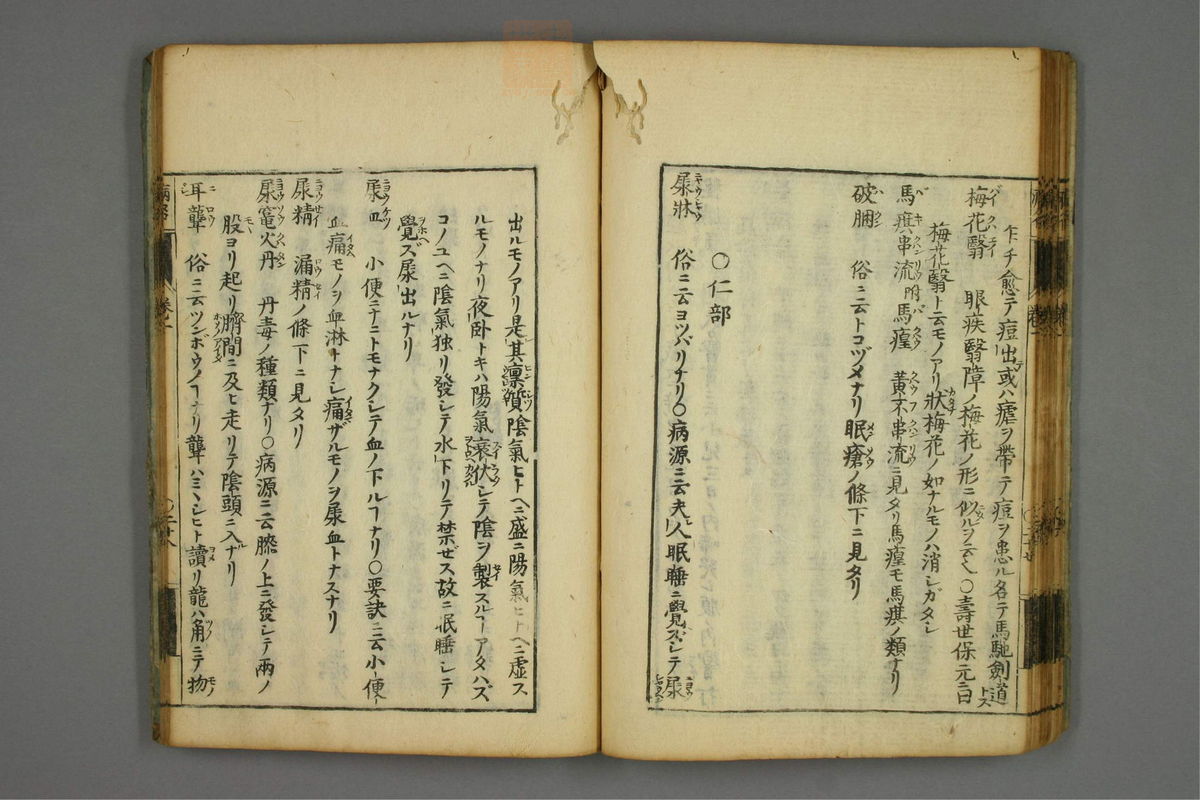 乍チ愈テ痘出或ハ瘧ヲ帶テ痘ヲ患ル名テ馬馳劍道トス
梅花翳 眼疾翳障ノ梅花ノ形ニ似ルヲ云 〇壽世保元ニ曰
梅花翳ト云モノアリ狀梅花ノ如ナルモノハ消シガタシ
馬旗串流 附 馬瘴 黄不串流ニ見タリ馬瘴モ馬旗ノ類ナリ
破胭 俗ニ云トコヅメナリ眠瘡ノ條下ニ見タリ
〇仁部
尿牀 俗ニ云ヨツバリナリ〇病源ニ云夫人眠睡ニ覺ズシテ尿
出ルモノアリ是其凛質陰氣ヒトヘニ盛ニ陽氣ヒトヘニ虚ス
ルモノナリ夜卧トキハ陽氣衰伏シテ陰ヲ製スルコアタハズ
コノユヘニ陰氣独リ發シテ水下リテ禁ゼス故ニ眠睡シテ
覺ズ尿出ルナリ
尿血 小便ニナニトモナクシテ血ノ下ルコナリ〇要訣ニ云小便
血痛モノヲ血淋トナシ痛ザルモノヲ尿血トナスナリ
尿精 漏精ノ條下ニ見タリ
尿竃火丹 丹毒ノ種類ナリ〇病源ニ云膝ノ上ニ發シテ兩ノ
股ヨリ起リ臍間ニ及ヒ走リテ陰頭ニ入ナリ
耳聾 俗ニ云ツンボウノコナリ聾ハミヽシヒト讀リ龍ハ角ニテ物